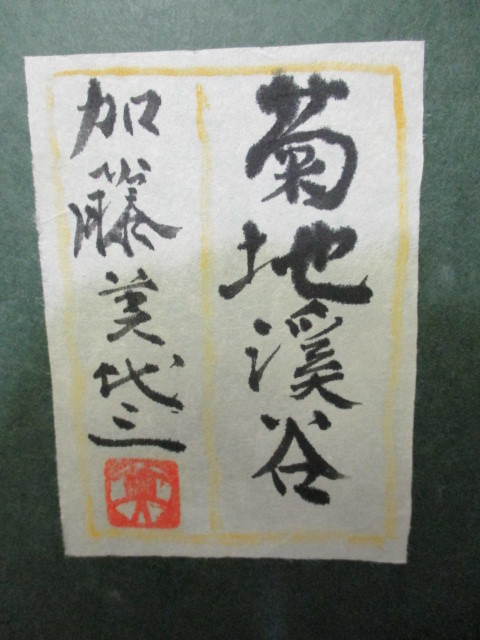 菊地溪谷
加藤美代三